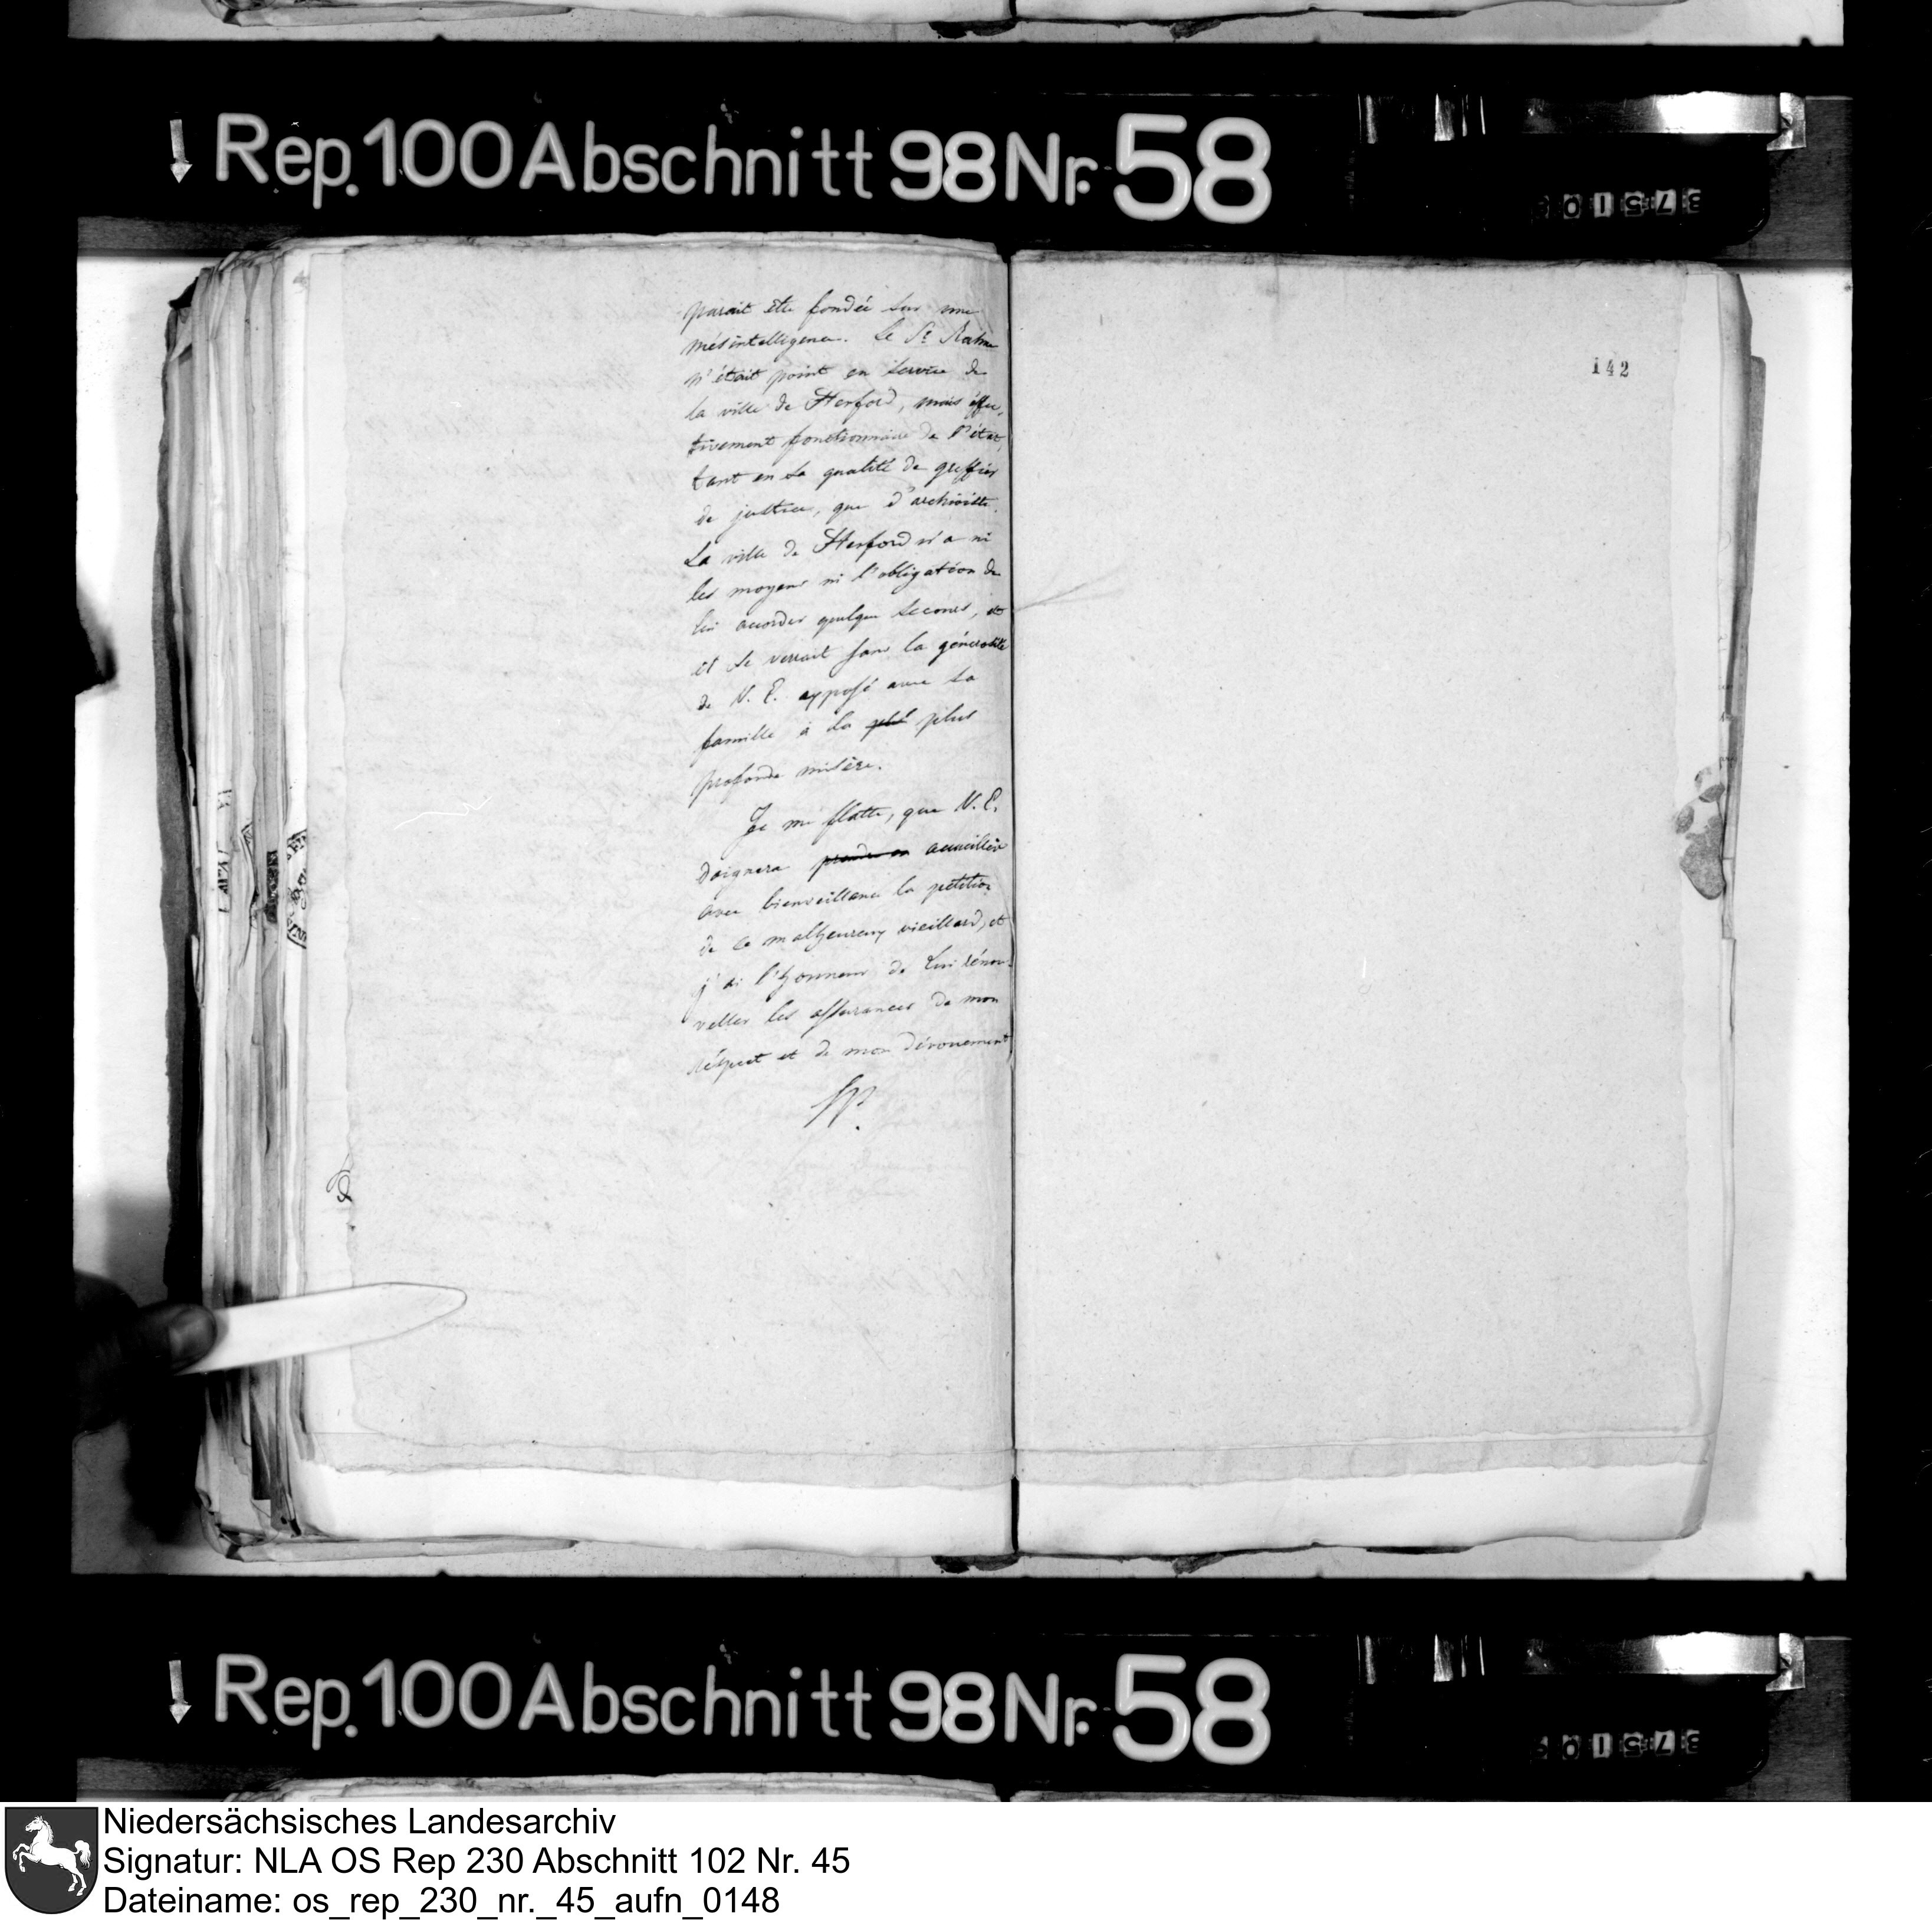 Rep. 100 Abschnitt 98 Nr. 58
parait etre fondée sur une
mésintelligence. Le Sr.
n'était point en service de
la ville de Herford, mais effec„
tivement fonctionnaire de l'état,
tant en sa qualité de greffier
de justice, que d'archiviste.
La ville de Herford n'a ni
les moyens ni l'obligation de
lui accorder quelque secours, et
il se verrait sans la générosité
de V. E. apposé avec sa
famille à la plus
profonde misère.
Je me flatte, que V. E.
daignera prendre en accueillir
avec bienveillance la petition
de ce malheureux vieillard, et
j'ai l'honneur de Lui rénou„
veller les assurances de mon
réspect et de mon dévouement
142
Rep. 100 Abschnitt 98 Nr. 58
Niedersächsisches Landesarchiv
Signatur: NLA OS Rep 230 Abschnitt 102 Nr. 45
Dateiname: os_rep_230_nr._45_aufn_0148